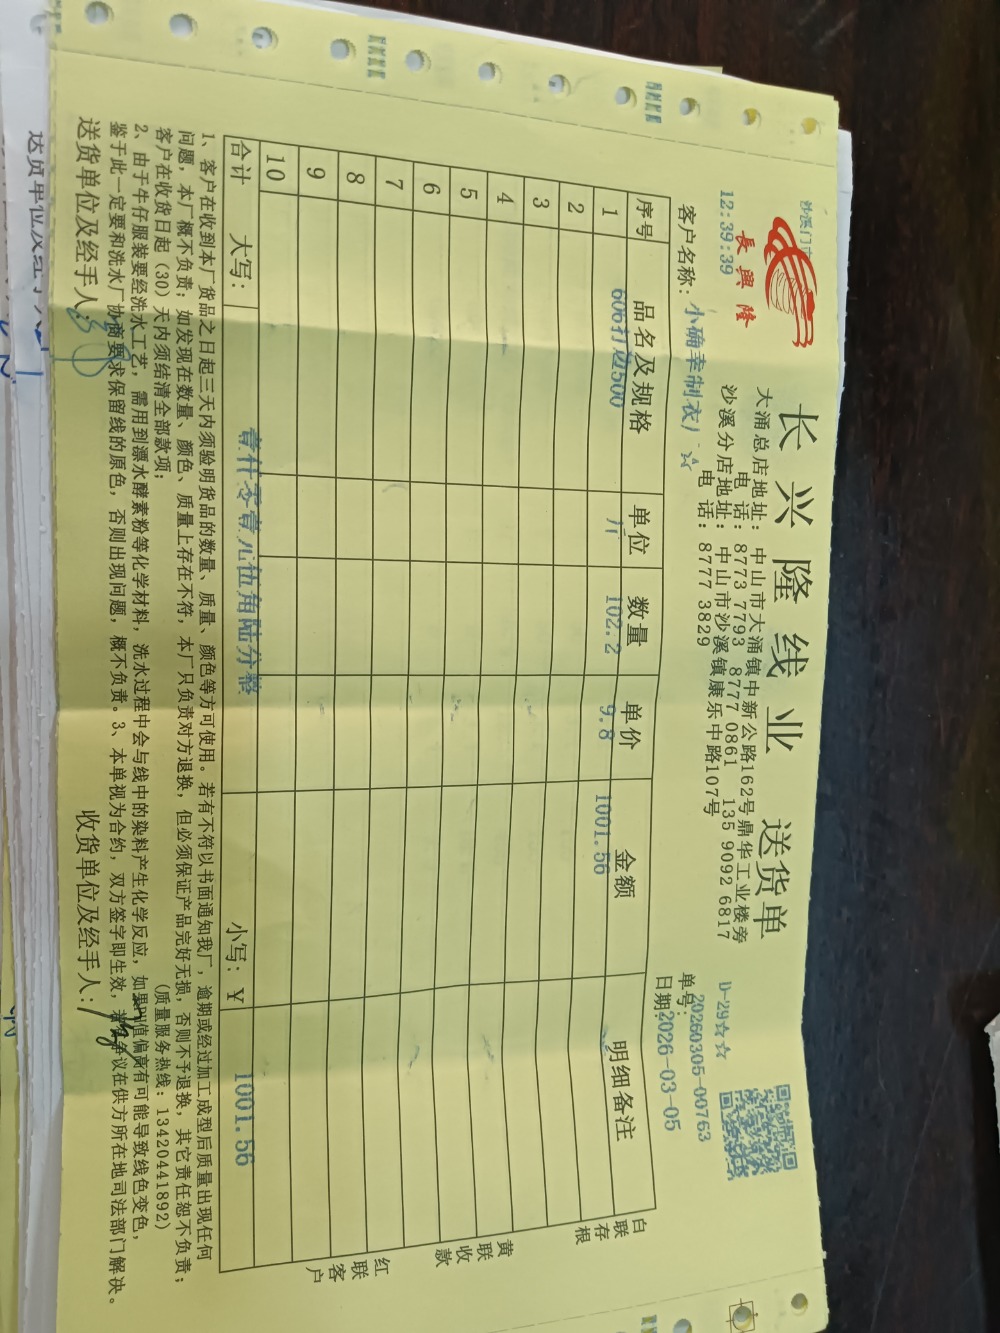 沙溪门市
長興隆
12:39:39
长兴隆线业 送货单
大涌总店地址:中山市大涌镇中新公路162号鼎华工业楼旁
电话:8773 7793 8777 0861 135 9092 6817
沙溪分店地址:中山市沙溪镇康乐中路107号
电话:8777 3829
D-29☆☆
客户名称:小确幸制衣厂 ☆
单号:20260305-00763
日期:2026-03-05
序号 品名及规格 单位 数量 单价 金额 明细备注
1 606打边500 斤 102.2 9.8 1001.56
2
3
4
5
6
7
8
9
10
合计 大写: 壹仟零壹元伍角陆分整 小写:¥ 1001.56
白联存根
黄联收款
红联客户
1、客户在收到本厂货品之日起三天内须验明货品的数量、质量、颜色等方可使用。若有不符以书面通知我厂,逾期或经过加工成型后质量出现任何
问题,本厂概不负责;如发现在数量、颜色、质量上存在不符,本厂只负责对方退换,但必须保证产品完好无损,否则不予退换,其它责任恕不负责;
客户在收货日起(30)天内须结清全部款项; (质量服务热线:13420441892)
2、由于牛仔服装要经洗水工艺,需用到漂水酵素粉等化学材料,洗水过程中会与线中的染料产生化学反应,如果PH值偏高有可能导致线色变色,
鉴于此一定要和洗水厂协商要求保留线的原色,否则出现问题,概不负责。3、本单视为合约,双方签字即生效,若有争议在供方所在地司法部门解决。
送货单位及经手人: 收货单位及经手人:
送货单位及经手人